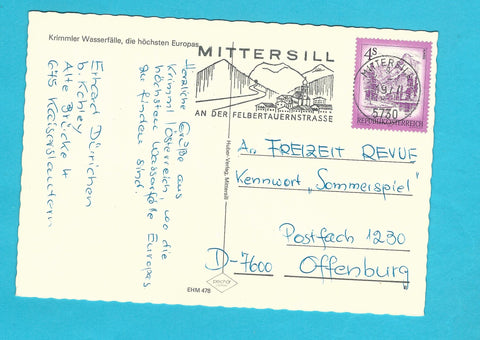 Krimmler Wasserfälle, die höchsten Europas
Herzliche Grüße aus
Krimml / Österreich, wo die
höchsten Wasserfälle Europas
zu finden sind.
Erhard Dürichen
b. Kohley
Alte Brücke 4
675 Kaiserslautern
Huber-Verlag, Mittersill
EHM 478
MITTERSILL
AN DER FELBERTAUERNSTRASSE
4s
REPUBLIK ÖSTERREICH
MITTERSILL
5730
An FREIZEIT REVUE
Kennwort „Sommerspiel"
Postfach 1230
D-7600 Offenburg